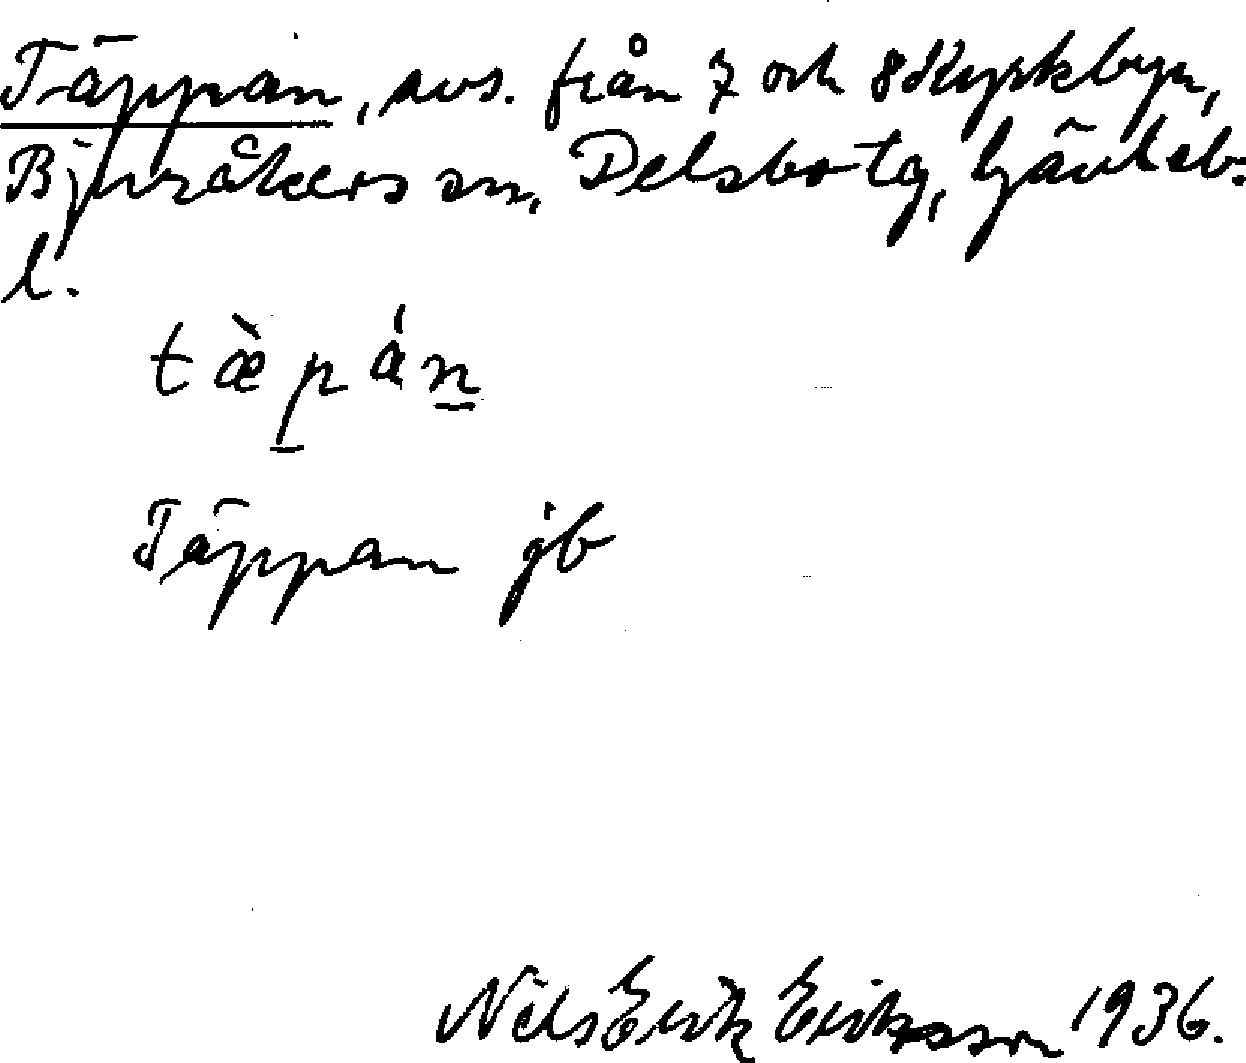 Täppan, avs. från 7 och 8 Kyrkbyn,
Bjuråkers sn, Delsbo tg, Gävleb.
l.
tæ̀pán
Täppan jb
Nils Erik Eriksson 1936.